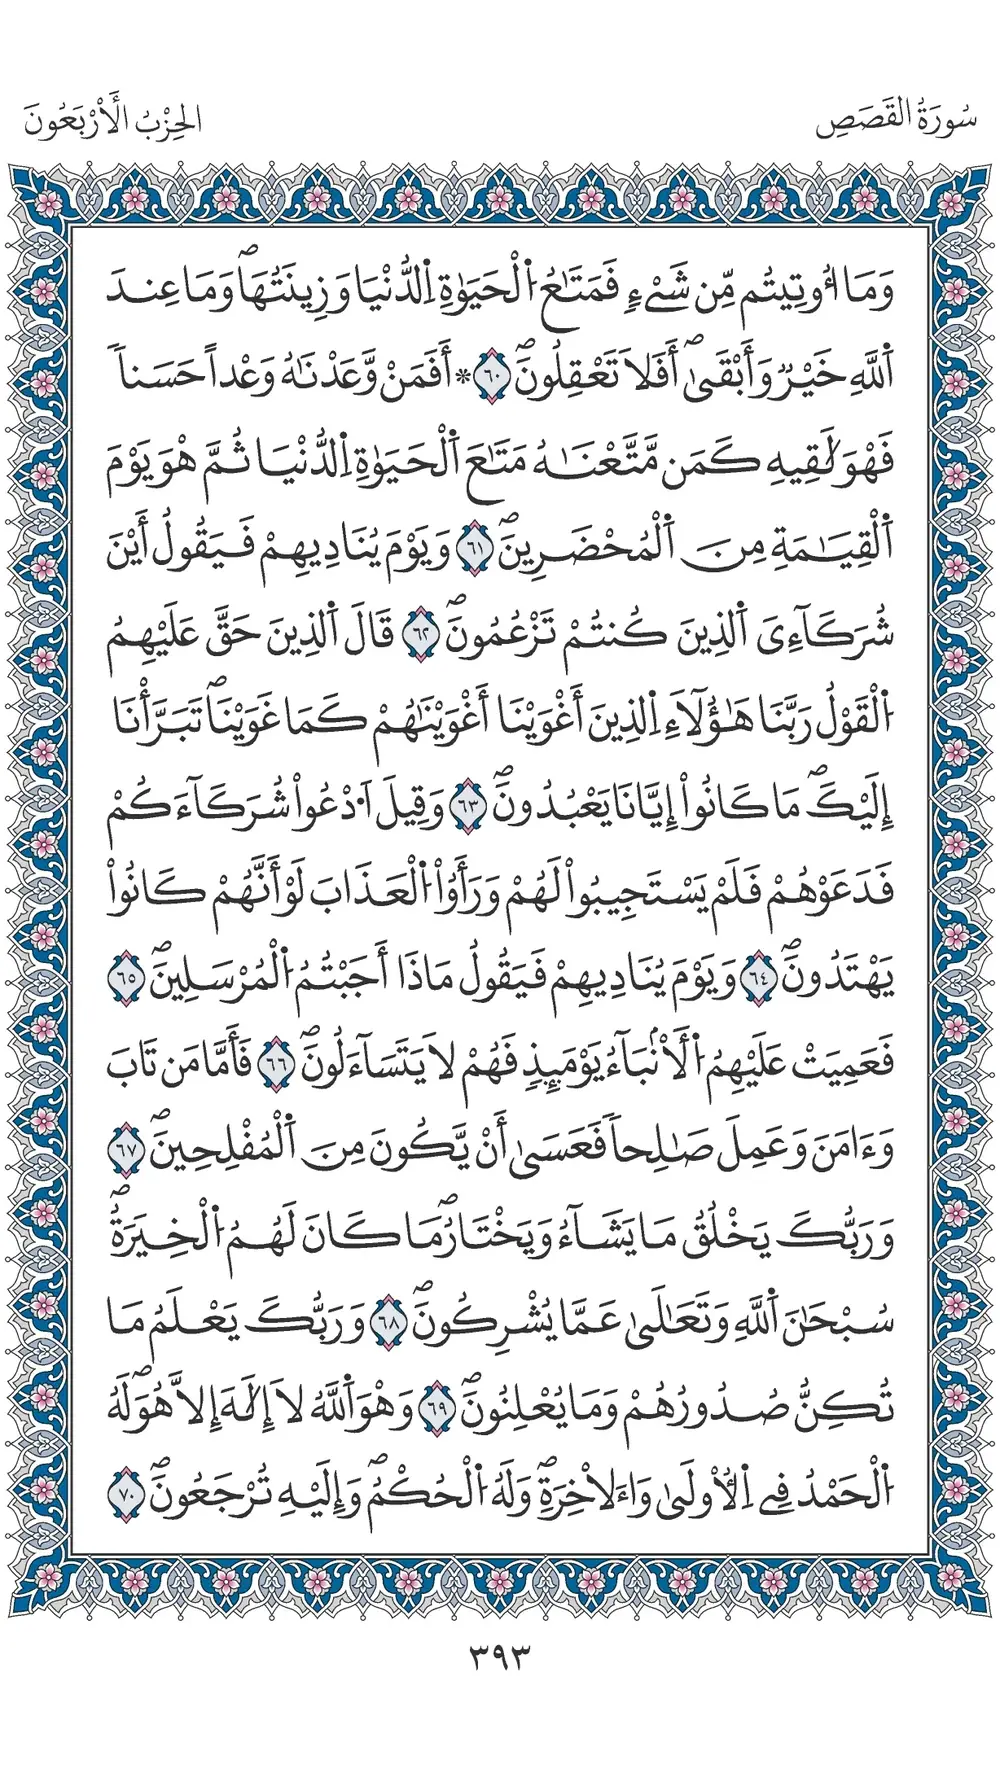 سُورَةُ القَصَصِ
الحِزْبُ الأَرْبَعُونَ
وَمَا أُوتِيتُم مِّن شَےْءٖ فَمَتَٰعُ اُ۬لْحَيَوٰةِ اِ۬لدُّنْيَا وَزِينَتُهَاۖ وَمَا عِندَ
اَ۬للَّهِ خَيْرٞ وَأَبْقَىٰٓۖ أَفَلَا تَعْقِلُونَۖ ٦٠ ۞ أَفَمَنْ وَّعَدْنَٰهُ وَعْداً حَسَناٗ
فَهْوَ لَٰقِيهِ كَمَن مَّتَّعْنَٰهُ مَتَٰعَ اَ۬لْحَيَوٰةِ اِ۬لدُّنْيَا ثُمَّ هْوَ يَوْمَ
اَ۬لْقِيَٰمَةِ مِنَ اَ۬لْمُحْضَرِينَۖ ٦١ وَيَوْمَ يُنَادِيهِمْ فَيَقُولُ أَيْنَ
شُرَكَآءِىَ اَ۬لذِينَ كُنتُمْ تَزْعُمُونَۖ ٦٢ قَالَ اَ۬لذِينَ حَقَّ عَلَيْهِمُ
اُ۬لْقَوْلُ رَبَّنَا هَٰٓؤُلَآءِ اِ۬لذِينَ أَغْوَيْنَا أَغْوَيْنَٰهُمْ كَمَا غَوَيْنَاۖ تَبَرَّأْنَا
إِلَيْكَۖ مَا كَانُواْ إِيَّانَا يَعْبُدُونَۖ ٦٣ وَقِيلَ اَ۟دْعُواْ شُرَكَآءَكُمْ
فَدَعَوْهُمْ فَلَمْ يَسْتَجِيبُواْ لَهُمْ وَرَأَوُاْ اُ۬لْعَذَابَ لَوْ أَنَّهُمْ كَانُواْ
يَهْتَدُونَۖ ٦٤ وَيَوْمَ يُنَادِيهِمْ فَيَقُولُ مَاذَا أَجَبْتُمُ اُ۬لْمُرْسَلِينَۖ ٦٥
فَعَمِيَتْ عَلَيْهِمُ اُ۬لْأَنۢبَآءُ يَوْمَئِذٖ فَهُمْ لَا يَتَسَآءَلُونَۖ ٦٦ فَأَمَّا مَن تَابَ
وَءَامَنَ وَعَمِلَ صَٰلِحاٗ فَعَسَىٰٓ أَنْ يَّكُونَ مِنَ اَ۬لْمُفْلِحِينَۖ ٦٧
وَرَبُّكَ يَخْلُقُ مَا يَشَآءُ وَيَخْتَارُۖ مَا كَانَ لَهُمُ اُ۬لْخِيَرَةُۖ
سُبْحَٰنَ اَ۬للَّهِ وَتَعَٰلَىٰ عَمَّا يُشْرِكُونَۖ ٦٨ وَرَبُّكَ يَعْلَمُ مَا
تُكِنُّ صُدُورُهُمْ وَمَا يُعْلِنُونَۖ ٦٩ وَهْوَ اَ۬للَّهُ لَا إِلَٰهَ إِلَّا هُوَۖ لَهُ
اُ۬لْحَمْدُ فِے اِ۬لْأُولَىٰ وَالْأٓخِرَةِۖ وَلَهُ اُ۬لْحُكْمُۖ وَإِلَيْهِ تُرْجَعُونَۖ ٧٠
٣٩٣